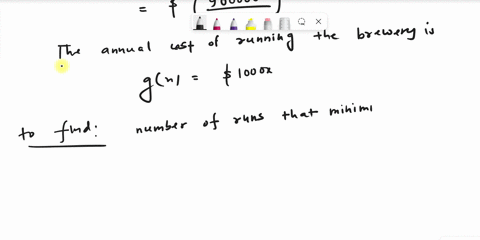 = $ (
The annual cost of running the brewery is
g(x) = $ 1000x
to find: number of runs that minimi